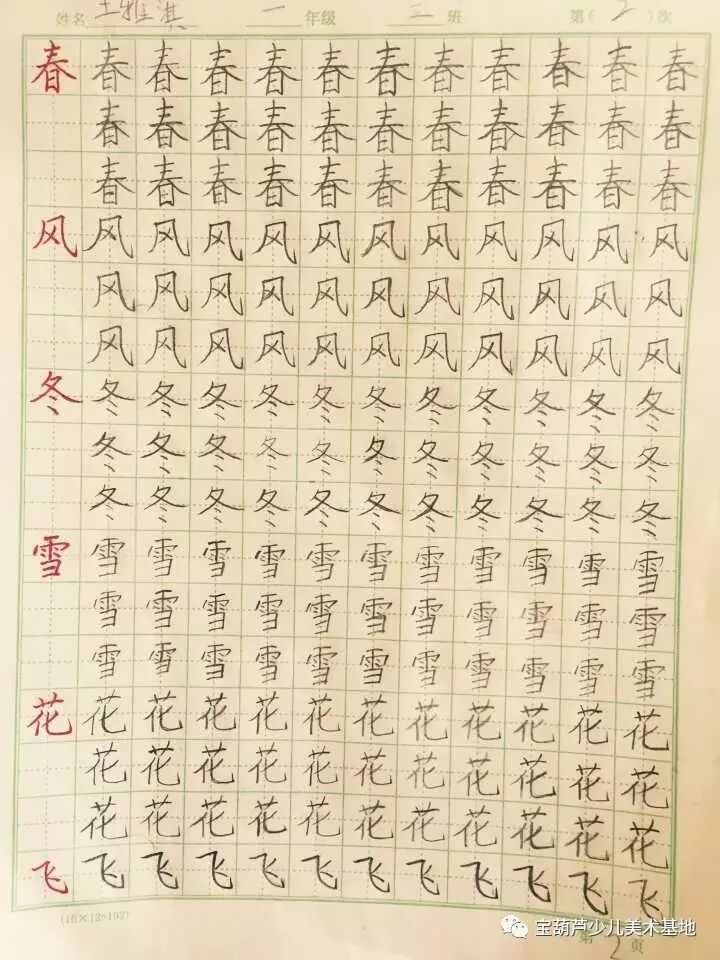 姓名 王雅淇 一 年级 三 班 第( 2 )次
春 春 春 春 春 春 春 春 春 春 春 春
春 春 春 春 春 春 春 春 春 春 春
春 春 春 春 春 春 春 春 春 春 春
风 风 风 风 风 风 风 风 风 风 风 风
风 风 风 风 风 风 风 风 风 风 风
风 风 风 风 风 风 风 风 风 风 风
冬 冬 冬 冬 冬 冬 冬 冬 冬 冬 冬 冬
冬 冬 冬 冬 冬 冬 冬 冬 冬 冬 冬
冬 冬 冬 冬 冬 冬 冬 冬 冬 冬 冬
雪 雪 雪 雪 雪 雪 雪 雪 雪 雪 雪 雪
雪 雪 雪 雪 雪 雪 雪 雪 雪 雪 雪
雪 雪 雪 雪 雪 雪 雪 雪 雪 雪 雪
花 花 花 花 花 花 花 花 花 花 花 花
花 花 花 花 花 花 花 花 花 花 花
花 花 花 花 花 花 花 花 花 花 花
飞 飞 飞 飞 飞 飞 飞 飞 飞 飞 飞 飞
(16×12=192)
宝葫芦少儿美术基地
第 2 页